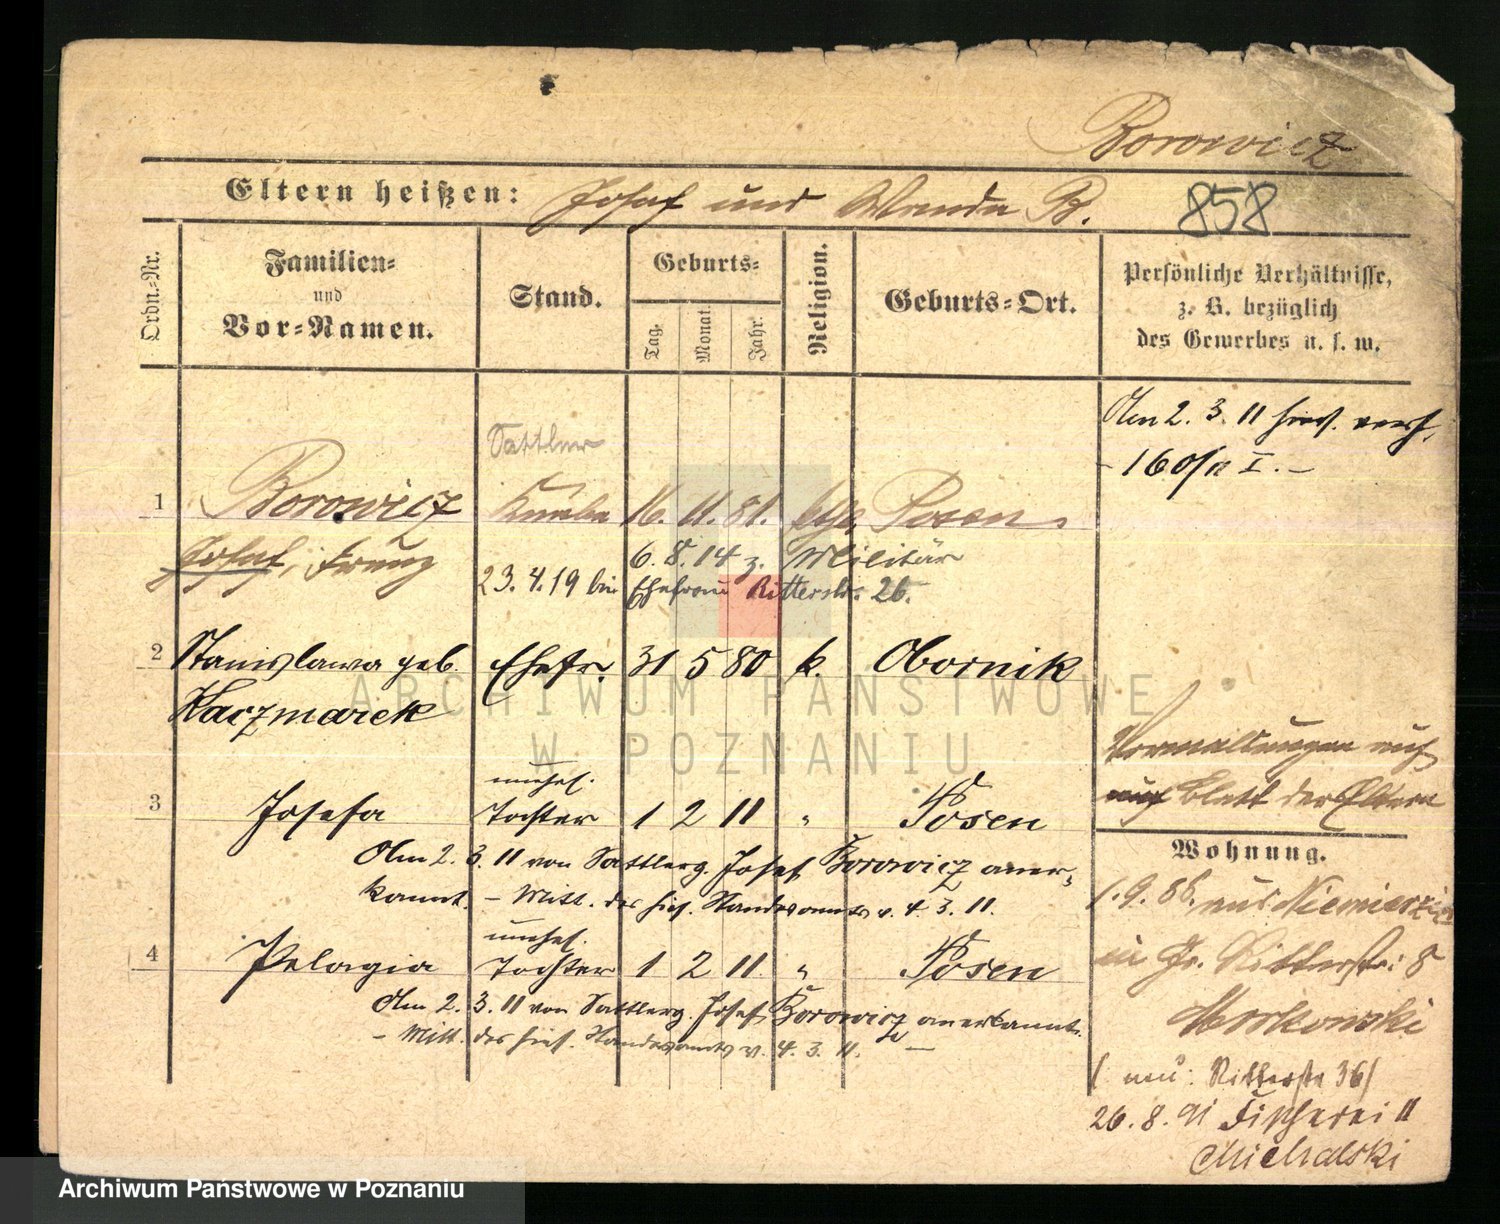 Borowicz
Eltern heißen: Josef und Wanda B. 858
Ordn.-Nr.
Familien-
und
Vor-Namen.
Stand.
Geburts-
Tag.
Monat.
Jahr.
Religion.
Geburts-Ort.
Persönliche Verhältnisse,
z. B. bezüglich
des Gewerbes u. s. w.
Am 2. 3. 11 hies. verh.
Sattler
1 Borowicz Knabe 16. 11. 81. Posen
Josef, Franz
6. 8. 14 z. Militär
23. 4. 19 bei Ehefrau Ritterstr. 26.
2 Stanislawa geb. Ehefr. 31 5 80 k. Obornik
Kaczmarek
unehel.
3 Josefa Tochter 1 2 11 " Posen
Am 2. 3. 11 von Sattlerg. Josef Borowicz aner-
kannt. – Mitt. des hies. Standesamts v. 4. 3. 11.
unehel.
4 Pelagia Tochter 1 2 11 " Posen
Am 2. 3. 11 von Sattlerg. Josef Borowicz anerkannt.
– Mitt. des hies. Standesamts v. 4. 3. 11. –
Blatt der Eltern
Wohnung.
1. 9. 86. aus Niemierzi
in Gr. Ritterstr: 8
( neu: Ritterstr 36)
26. 8. 91 Fischerei 11
Michalski
ARCHIWUM PAŃSTWOWE
W POZNANIU
Archiwum Państwowe w Poznaniu